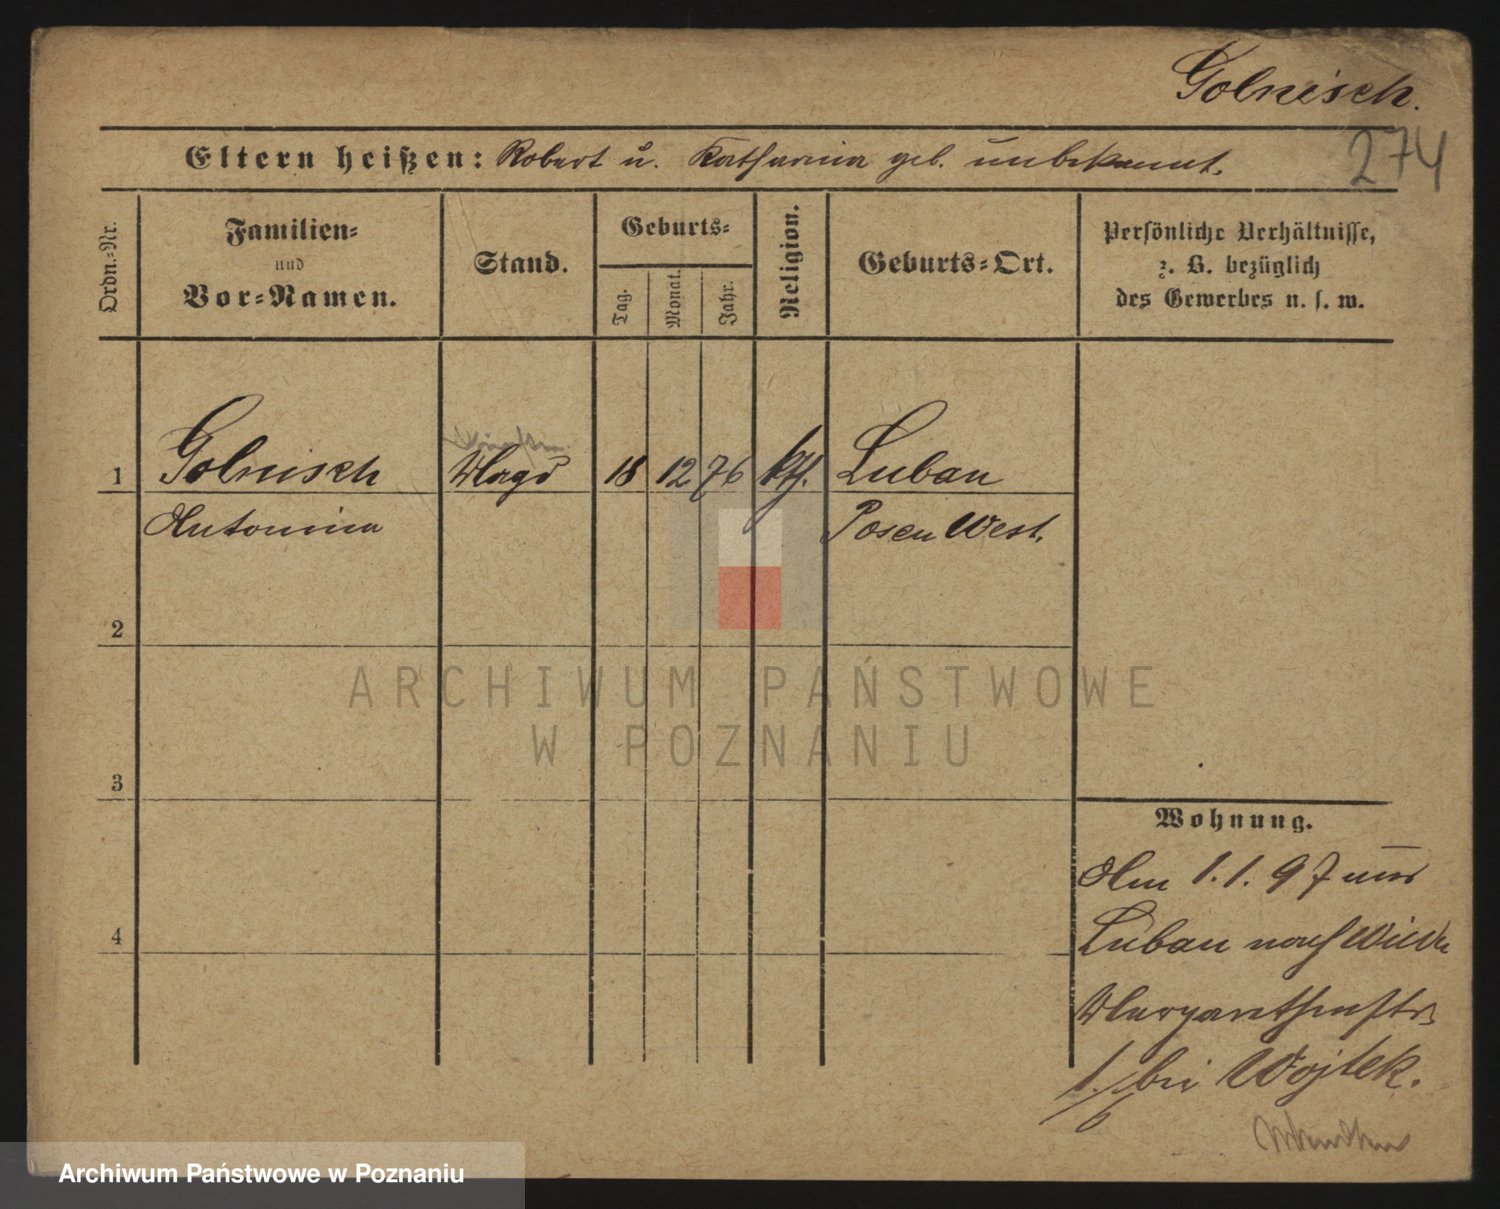 Golnisch.
274
Eltern heißen: Robert u. Katharina geb. unbekannt.
Ordn.-Nr.
Familien-
und
Vor-Namen.
Stand.
Geburts-
Tag.
Monat.
Jahr.
Religion.
Geburts-Ort.
Persönliche Verhältnisse,
z. B. bezüglich
des Gewerbes u. s. w.
1 Golnisch Magd 18 12 76 kth. Luban
Antonina Posen West.
2
3
4
Wohnung.
Am 1.1.97 von
Luban nach Wilda
Margarethenstr.
1. bei Wojtek.
ARCHIWUM PAŃSTWOWE
W POZNANIU
Archiwum Państwowe w Poznaniu